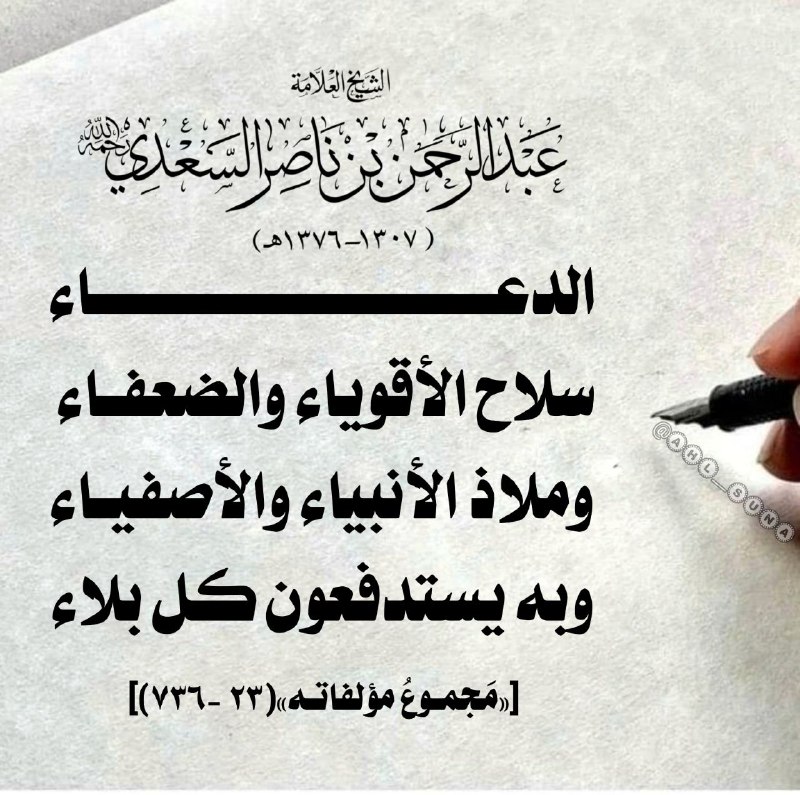 الشيخ العلامة
عَبْدُ الرَّحْمَن بْن نَاصِر السَّعْدِي رَحِمَهُ اللهُ
(١٣٠٧-١٣٧٦هـ)
الدعـــــــــــــــــاء
سلاح الأقوياء والضعفـاء
وملاذ الأنبياء والأصفيـاء
وبه يستدفعون كل بلاء
[«مَجمـوعُ مؤلفاتـه»(٢٣ -٧٣٦)]
@AHL_SUNA